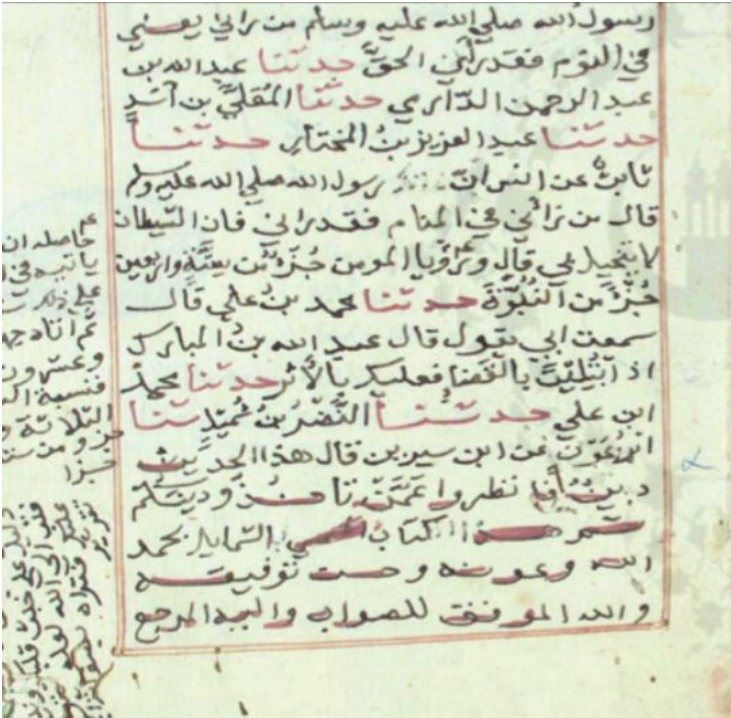 رسول الله صلي الله عليه وسلم من راني يعني
في النوم فقد رأي الحق حدثنا عبد الله بن
عبد الرحمن الدارمي حدثنا المعلي بن أسد
حدثنا عبد العزيز بن المختار حدثنا
ثابت عن انس ان رسول الله صلي الله عليه وسلم
قال من راني في المنام فقد راني فان الشيطان
لا يتخيل بي قال ورؤيا المومن جزؤ من ستة واربعين
جزؤ من النبوة حدثنا محمد بن علي قال
سمعت ابي يقول قال عبد الله بن المبارك
اذا ابتليت بالقضا فعليك بالأثر حدثنا محمد
ابن علي حدثنا النضر بن شميل ثنا
ابن عون عن ابن سيرين قال هذا الحديث
دين فانظروا عمن تاخذو دينكم
تم الكتاب الشمايل بحمد
الله وعونه وحسن توفيقه
والله الموفق للصواب واليه المرجع
حاصله ان
ياتيه في
علي ذلك
ثم اتاه
وعشرون
فنسبة
الثلاثة
جزو من
جزا